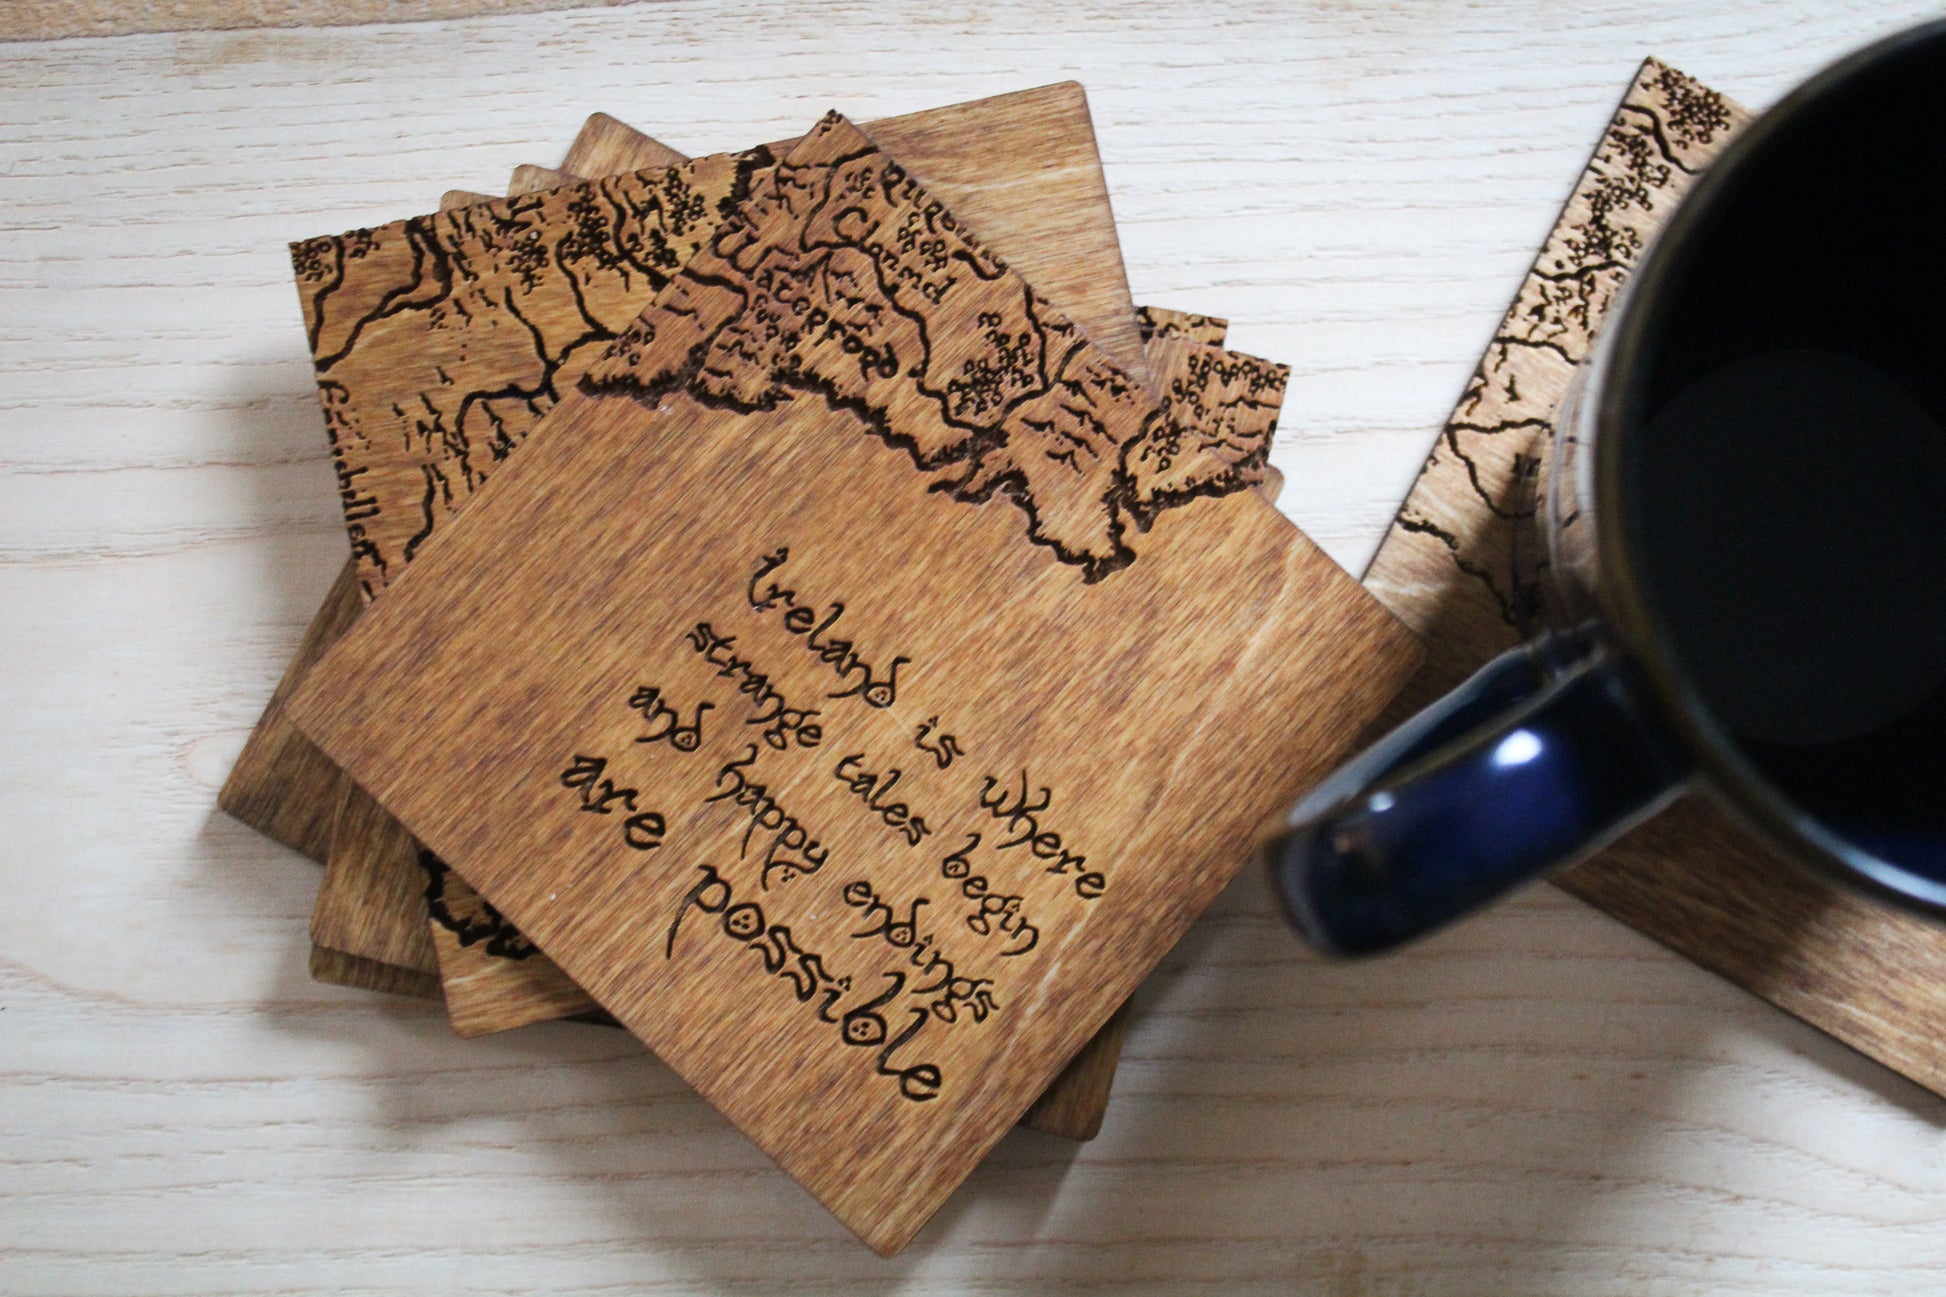 Waterford
Clonmel
Ireland is where
strange tales begin
and happy endings
are possible